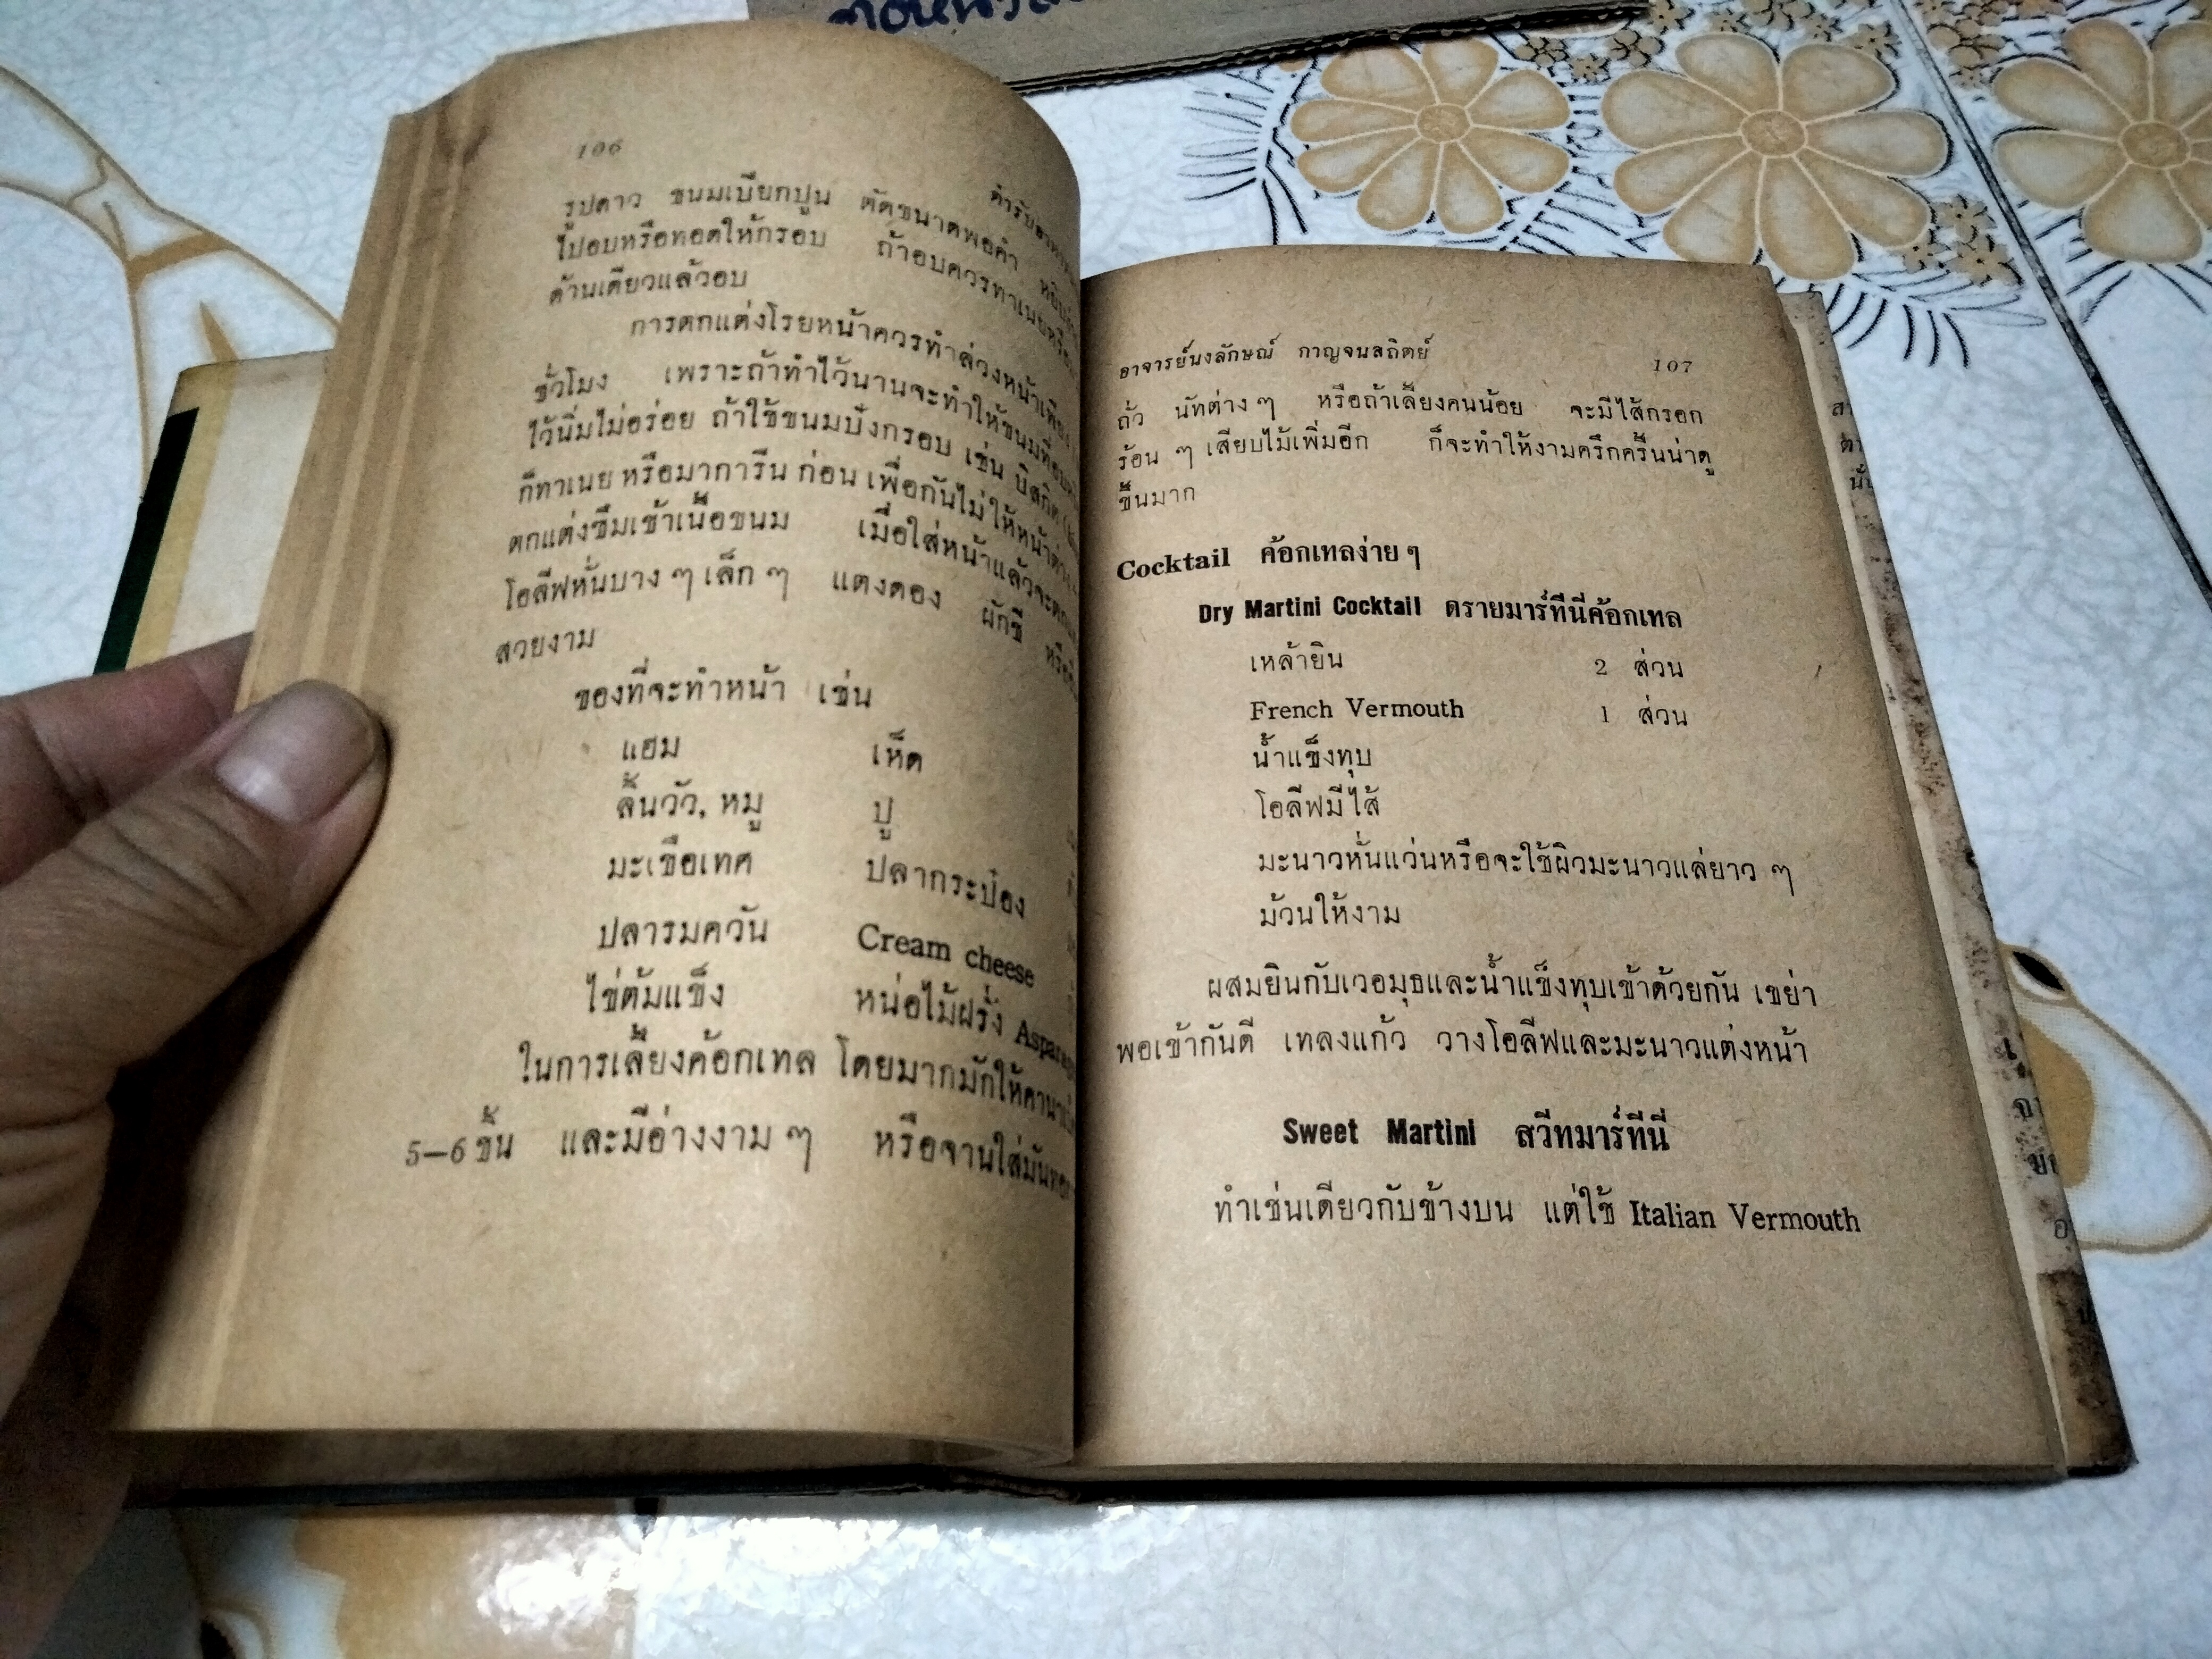 106
รูปดาว ขนมเบียกปูน ตัดขนาดพอคำ
ไปอบหรือทอดให้กรอบ ถ้าอบควรทาเนยหรือ
ด้านเดียวแล้วอบ
การตกแต่งโรยหน้าควรทำล่วงหน้าเพียง
ชั่วโมง เพราะถ้าทำไว้นานจะทำให้ขนมที่อบ
ไว้นิ่มไม่อร่อย ถ้าใช้ขนมปังกรอบ เช่น บิสกิต
ก็ทาเนย หรือมาการีน ก่อน เพื่อกันไม่ให้หน้าต่าง
ตกแต่งซึมเข้าเนื้อขนม เมื่อใส่หน้าแล้วจะตก
โอลีฟหั่นบาง ๆ เล็ก ๆ แตงดอง ผักชี หรือ
สวยงาม
ของที่จะทำหน้า เช่น
แฮม เห็ด
ลิ้นวัว, หมู ปู
มะเขือเทศ ปลากระป๋อง
ปลารมควัน Cream cheese
ไข่ต้มแข็ง หน่อไม้ฝรั่ง
ในการเลี้ยงค้อกเทล โดยมากมักให้คานาเป้
5–6 ชิ้น และมีอ่างงาม ๆ หรือจานใส่มันทอด
อาจารย์นงลักษณ์ กาญจนสถิตย์ 107
ถั่ว นัทต่าง ๆ หรือถ้าเลี้ยงคนน้อย จะมีไส้กรอก
ร้อน ๆ เสียบไม้เพิ่มอีก ก็จะทำให้งามครึกครื้นน่าดู
ขึ้นมาก
Cocktail ค้อกเทลง่าย ๆ
Dry Martini Cocktail ดรายมาร์ทีนี่ค้อกเทล
เหล้ายิน 2 ส่วน
French Vermouth 1 ส่วน
น้ำแข็งทุบ
โอลีฟมีไส้
มะนาวหั่นแว่นหรือจะใช้ผิวมะนาวแล่ยาว ๆ
ม้วนให้งาม
ผสมยินกับเวอมุธและน้ำแข็งทุบเข้าด้วยกัน เขย่า
พอเข้ากันดี เทลงแก้ว วางโอลีฟและมะนาวแต่งหน้า
Sweet Martini สวีทมาร์ทีนี่
ทำเช่นเดียวกับข้างบน แต่ใช้ Italian Vermouth